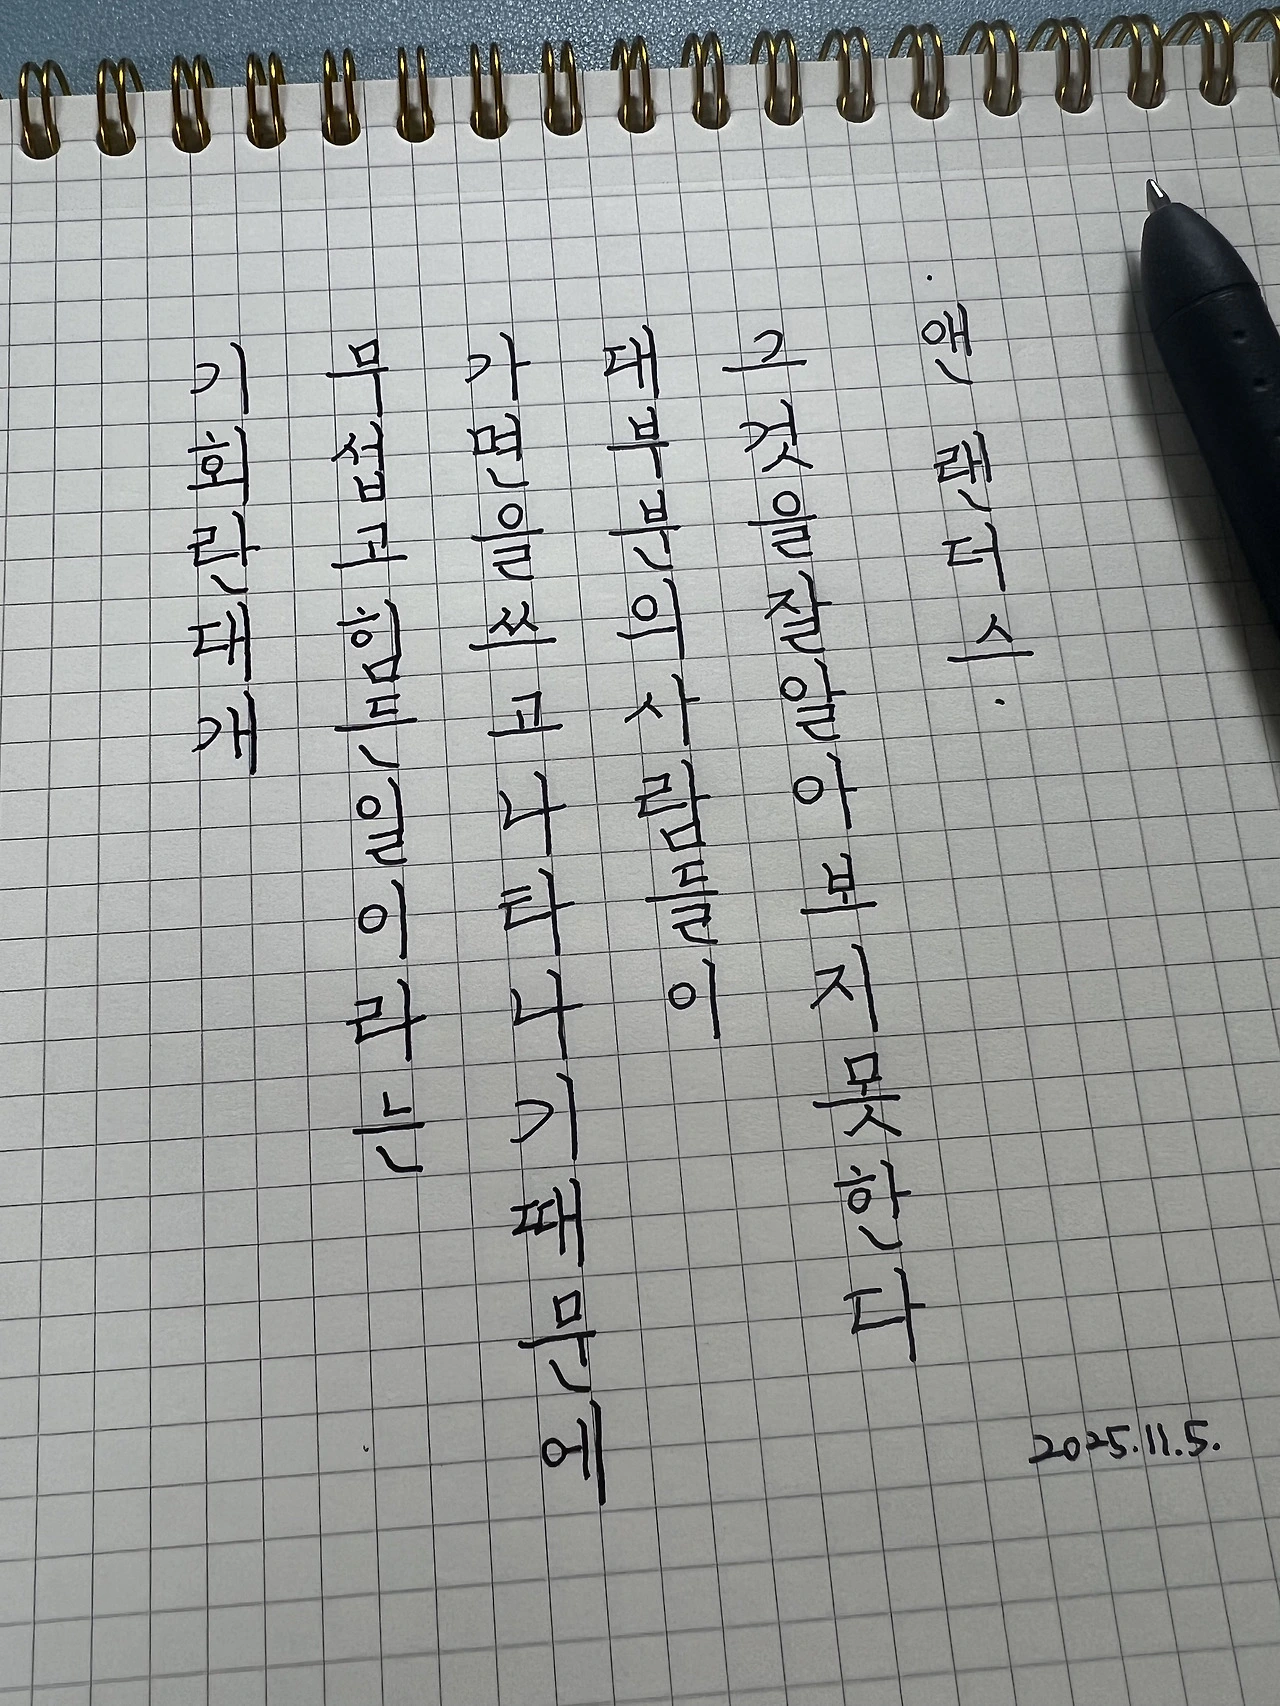 기회란대개
무섭고힘든일이라는
가면을쓰고나타나기때문에
대부분의사람들이
그것을잘알아보지못한다
·앤 랜더스·
2025.11.5.